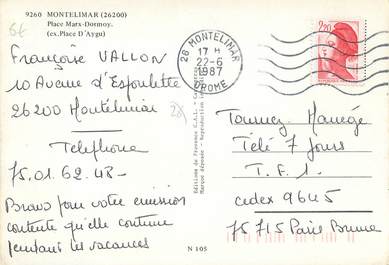 9260 MONTELIMAR (26200)
Place Marx-Dormoy.
(ex.Place D'Aygu)
Françoise VALLON
10 Avenue d'Espoulette
26200 Montélimar
Telephone
75.01.62.48-
Bravo pour votre emission
contente qu'elle continue
pendant les vacances
26 MONTELIMAR
17 H
22-6
1987
DROME
2,20
Editions de Provence
Marque déposée - Reproduction
N 105
Tournez Manège
Télé 7 Jours
T.F.1.
cedex 9645
75715 Paris Brune